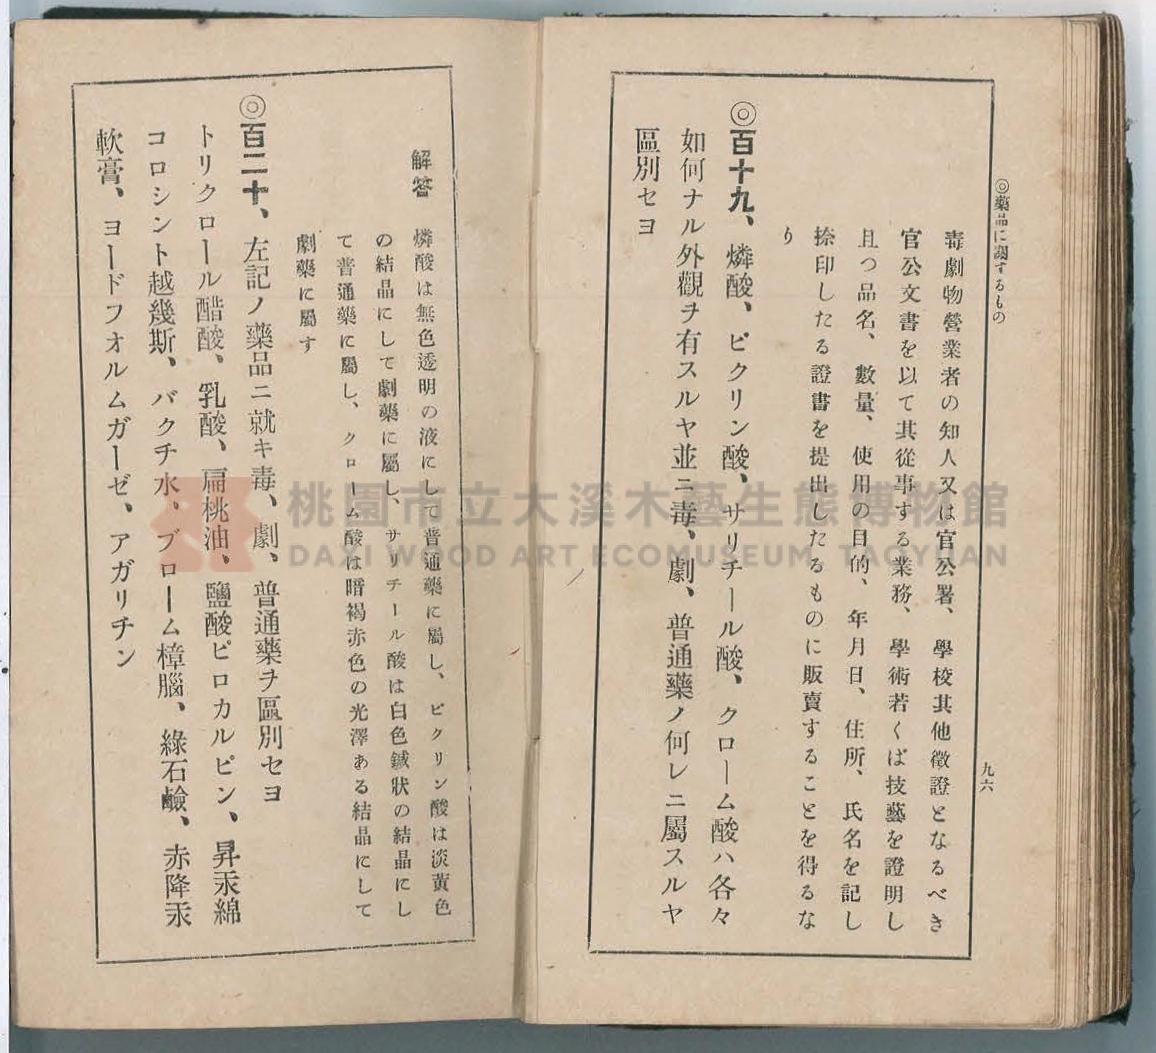 ◎藥品に關するもの
九六
毒劇物營業者の知人又は官公署、學校其他徵證となるべき
官公文書を以て其從事する業務、學術若くば技藝を證明し
且つ品名、數量、使用の目的、年月日、住所、氏名を記し
捺印したる證書を提出したるものに販賣することを得るな
り
◎百十九、燐酸、ピクリン酸、サリチール酸、クローム酸ハ各々
如何ナル外觀ヲ有スルヤ並ニ毒、劇、普通藥ノ何レニ屬スルヤ
區別セヨ
解答 燐酸は無色透明の液にして普通藥に屬し、ピクリン酸は淡黃色
の結晶にして劇藥に屬し、サリチール酸は白色鍼狀の結晶にし
て普通藥に屬し、クローム酸は暗褐赤色の光澤ある結晶にして
劇藥に屬す
◎百二十、左記ノ藥品ニ就キ毒、劇、普通藥ヲ區別セヨ
トリクロール醋酸、乳酸、扁桃油、鹽酸ピロカルピン、昇汞綿
コロシント越幾斯、バクチ水、ブローム樟腦、綠石鹼、赤降汞
軟膏、ヨードフオルムガーゼ、アガリチン
桃園市立大溪木藝生態博物館
DAXI WOOD ART ECOMUSEUM, TAOYUAN